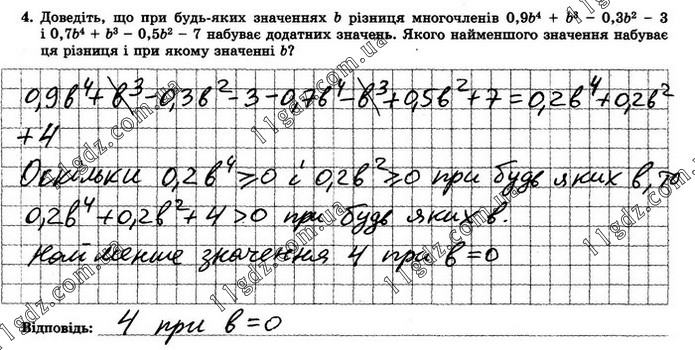 4. Доведіть, що при будь-яких значеннях b різниця многочленів 0,9b⁴ + b³ – 0,3b² – 3
і 0,7b⁴ + b³ – 0,5b² – 7 набуває додатних значень. Якого найменшого значення набуває
ця різниця і при якому значенні b?
0,9b⁴+b³-0,3b²-3-0,7b⁴-b³+0,5b²+7=0,2b⁴+0,2b²
+4
Оскільки 0,2b⁴≥0 і 0,2b²≥0 при будь яких b, то
0,2b⁴+0,2b²+4>0 при будь яких b.
Найменше значення 4 при b=0
Відповідь: 4 при b=0
11gdz.com.ua
11gdz.com.ua
11gdz.com.ua
11gdz.com.ua
11gdz.com.ua
11gdz.com.ua